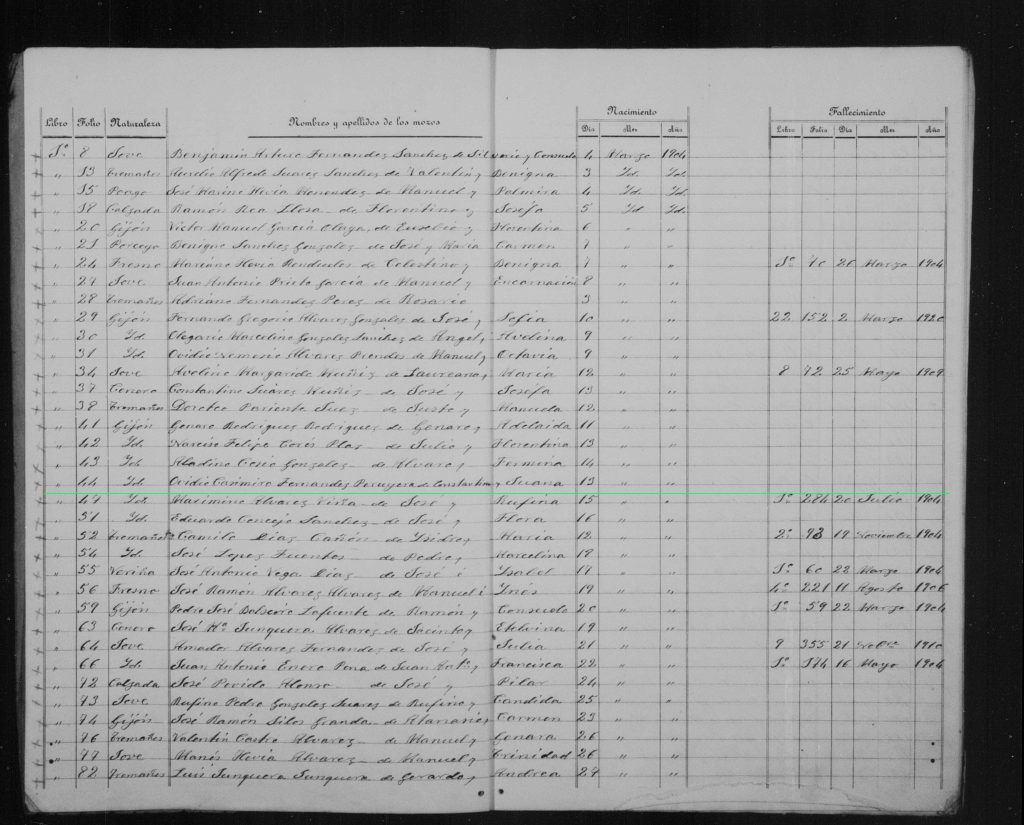 Nacimiento Fallecimiento
Libro Folio Naturaleza Nombres y apellidos de los mozos Dia Mes Año Libro Folio Dia Mes Año
1º 8 Jove Benjamin Arturo Fernandez Sanchez de Silverio y Consuelo 4 Marzo 1904
" 13 Tremañes Aurelio Alfredo Suarez Sanchez de Valentin y Benigna 3 Id. Id.
" 15 Poago José Marino Hevia Menendez de Manuel y Palmira 4 Id Id
" 18 Calzada Ramón Rea Llosa de Florentino y Josefa 5 Id Id.
" 20 Gijón Victor Manuel García Olaya, de Eusebio y Florentina 6 " "
" 21 Porceyo Benigno Sanchez Gonzalez de José y Maria Carmen 7 " "
" 24 Fresno Mariano Hevia Rendueles de Celestino y Benigna 7 " " 1º 70 26 Marzo 1904
" 27 Jove Juan Antonio Prieto García de Manuel y Encarnación 8 " "
" 28 Tremañes Adriano Fernandez Perez de Rosario 3 " "
" 29 Gijón Fernando Gregorio Alvarez Gonzalez de José y Sofía 10 " " 22 152 2 Marzo 1920
" 30 Id. Olegario Marcelino Gonzalez Sanchez de Angel y Avelina 9 " "
" 31 Id. Ovidio Nemesio Alvarez Prendes de Manuel y Octavia 9 " "
" 34 Jove Avelino Margarido Muñiz de Laureano y María 12 " " 8 72 25 Mayo 1909
" 37 Cenero Constantino Suárez Muñiz de José y Josefa 13 " "
" 38 Tremañes Doroteo Pariente Juez de Justo y Manuela 12 " "
" 41 Gijón Genaro Rodriguez Rodriguez de Genaro y Adelaida 11 " "
" 42 Id. Narciso Felipe Cortés Plas de Julio y Florentina 13 " "
" 43 Id. Aladino Cosio Gonzalez de Alvaro y Fermina 14 " "
" 44 Id. Ovidio Casimiro Fernandez de Constantino y Juana 13 " "
" 47 Id. Maximino Alvarez Viña de José y Rufina 15 " " 1º 284 20 Julio 1904
" 51 Id. Eduardo Concejo Sanchez de José y Flora 16 " "
" 52 Tremañes Camilo Diaz Cañón de Isidro y Maria 12 " " 2º 93 19 Noviembre 1904
" 54 Id. José Lopez Fuentes de Pedro y Marcelina 18 " "
" 55 Veriña José Antonio Vega Diaz de José é Ysabel 17 " " 1º 60 22 Marzo 1904
" 56 Fresno José Ramón Alvarez Alvarez de Manuel é Inés 19 " " 4º 221 11 Agosto 1906
" 59 Gijón Pedro José Balseiro Lafuente de Ramón y Consuelo 20 " " 1º 59 22 Marzo 1904
" 63 Cenero José Mª Junquera Alvarez de Jacinto y Etelvina 19 " "
" 64 Jove Amador Alvarez Fernandez de José y Julia 21 " " 9 355 21 1910
" 66 Id. Juan Antonio Enero Pena de Juan Antº y Francisca 22 " " 1º 174 16 Mayo 1904
" 72 Calzada José Pevida Alonso de José y Pilar 24 " "
" 73 Jove Rufino Pedro Gonzalez Suarez de Rufino y Candida 25 " "
" 74 Gijón José Ramón Silos Granda de Atanasio y Carmen 23 " "
" 76 Tremañes Valentín Castro Alvarez de Manuel y Genara 26 " "
" 77 Jove Manés Hevia Alvarez de Manuel y Trinidad 26 " "
" 82 Tremañes Luis Junquera Junquera de Gerardo y Andrea 29 " "